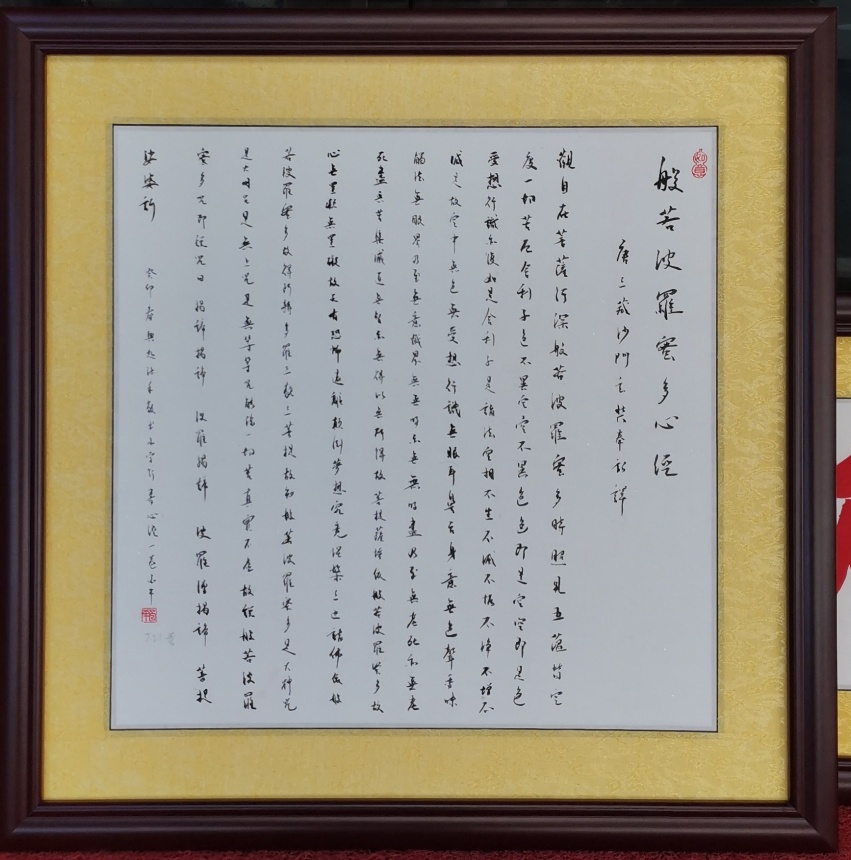 般若波羅蜜多心經
唐三藏沙門玄奘奉詔譯
觀自在菩薩行深般若波羅蜜多時照見五蘊皆空
度一切苦厄舍利子色不異空空不異色色即是空空即是色
受想行識亦復如是舍利子是諸法空相不生不滅不垢不淨不增不
減是故空中無色無受想行識無眼耳鼻舌身意無色聲香味
觸法無眼界乃至無意識界無無明亦無無明盡乃至無老死亦無老
死盡無苦集滅道無智亦無得以無所得故菩提薩埵依般若波羅蜜多故
心無罣礙無罣礙故無有恐怖遠離顛倒夢想究竟涅槃三世諸佛依般
若波羅蜜多故得阿耨多羅三藐三菩提故知般若波羅蜜多是大神咒
是大明咒是無上咒是無等等咒能除一切苦真實不虛故說般若波羅
蜜多咒即說咒曰 揭諦揭諦 波羅揭諦 波羅僧揭諦 菩提
娑婆訶
癸卯 心經一卷